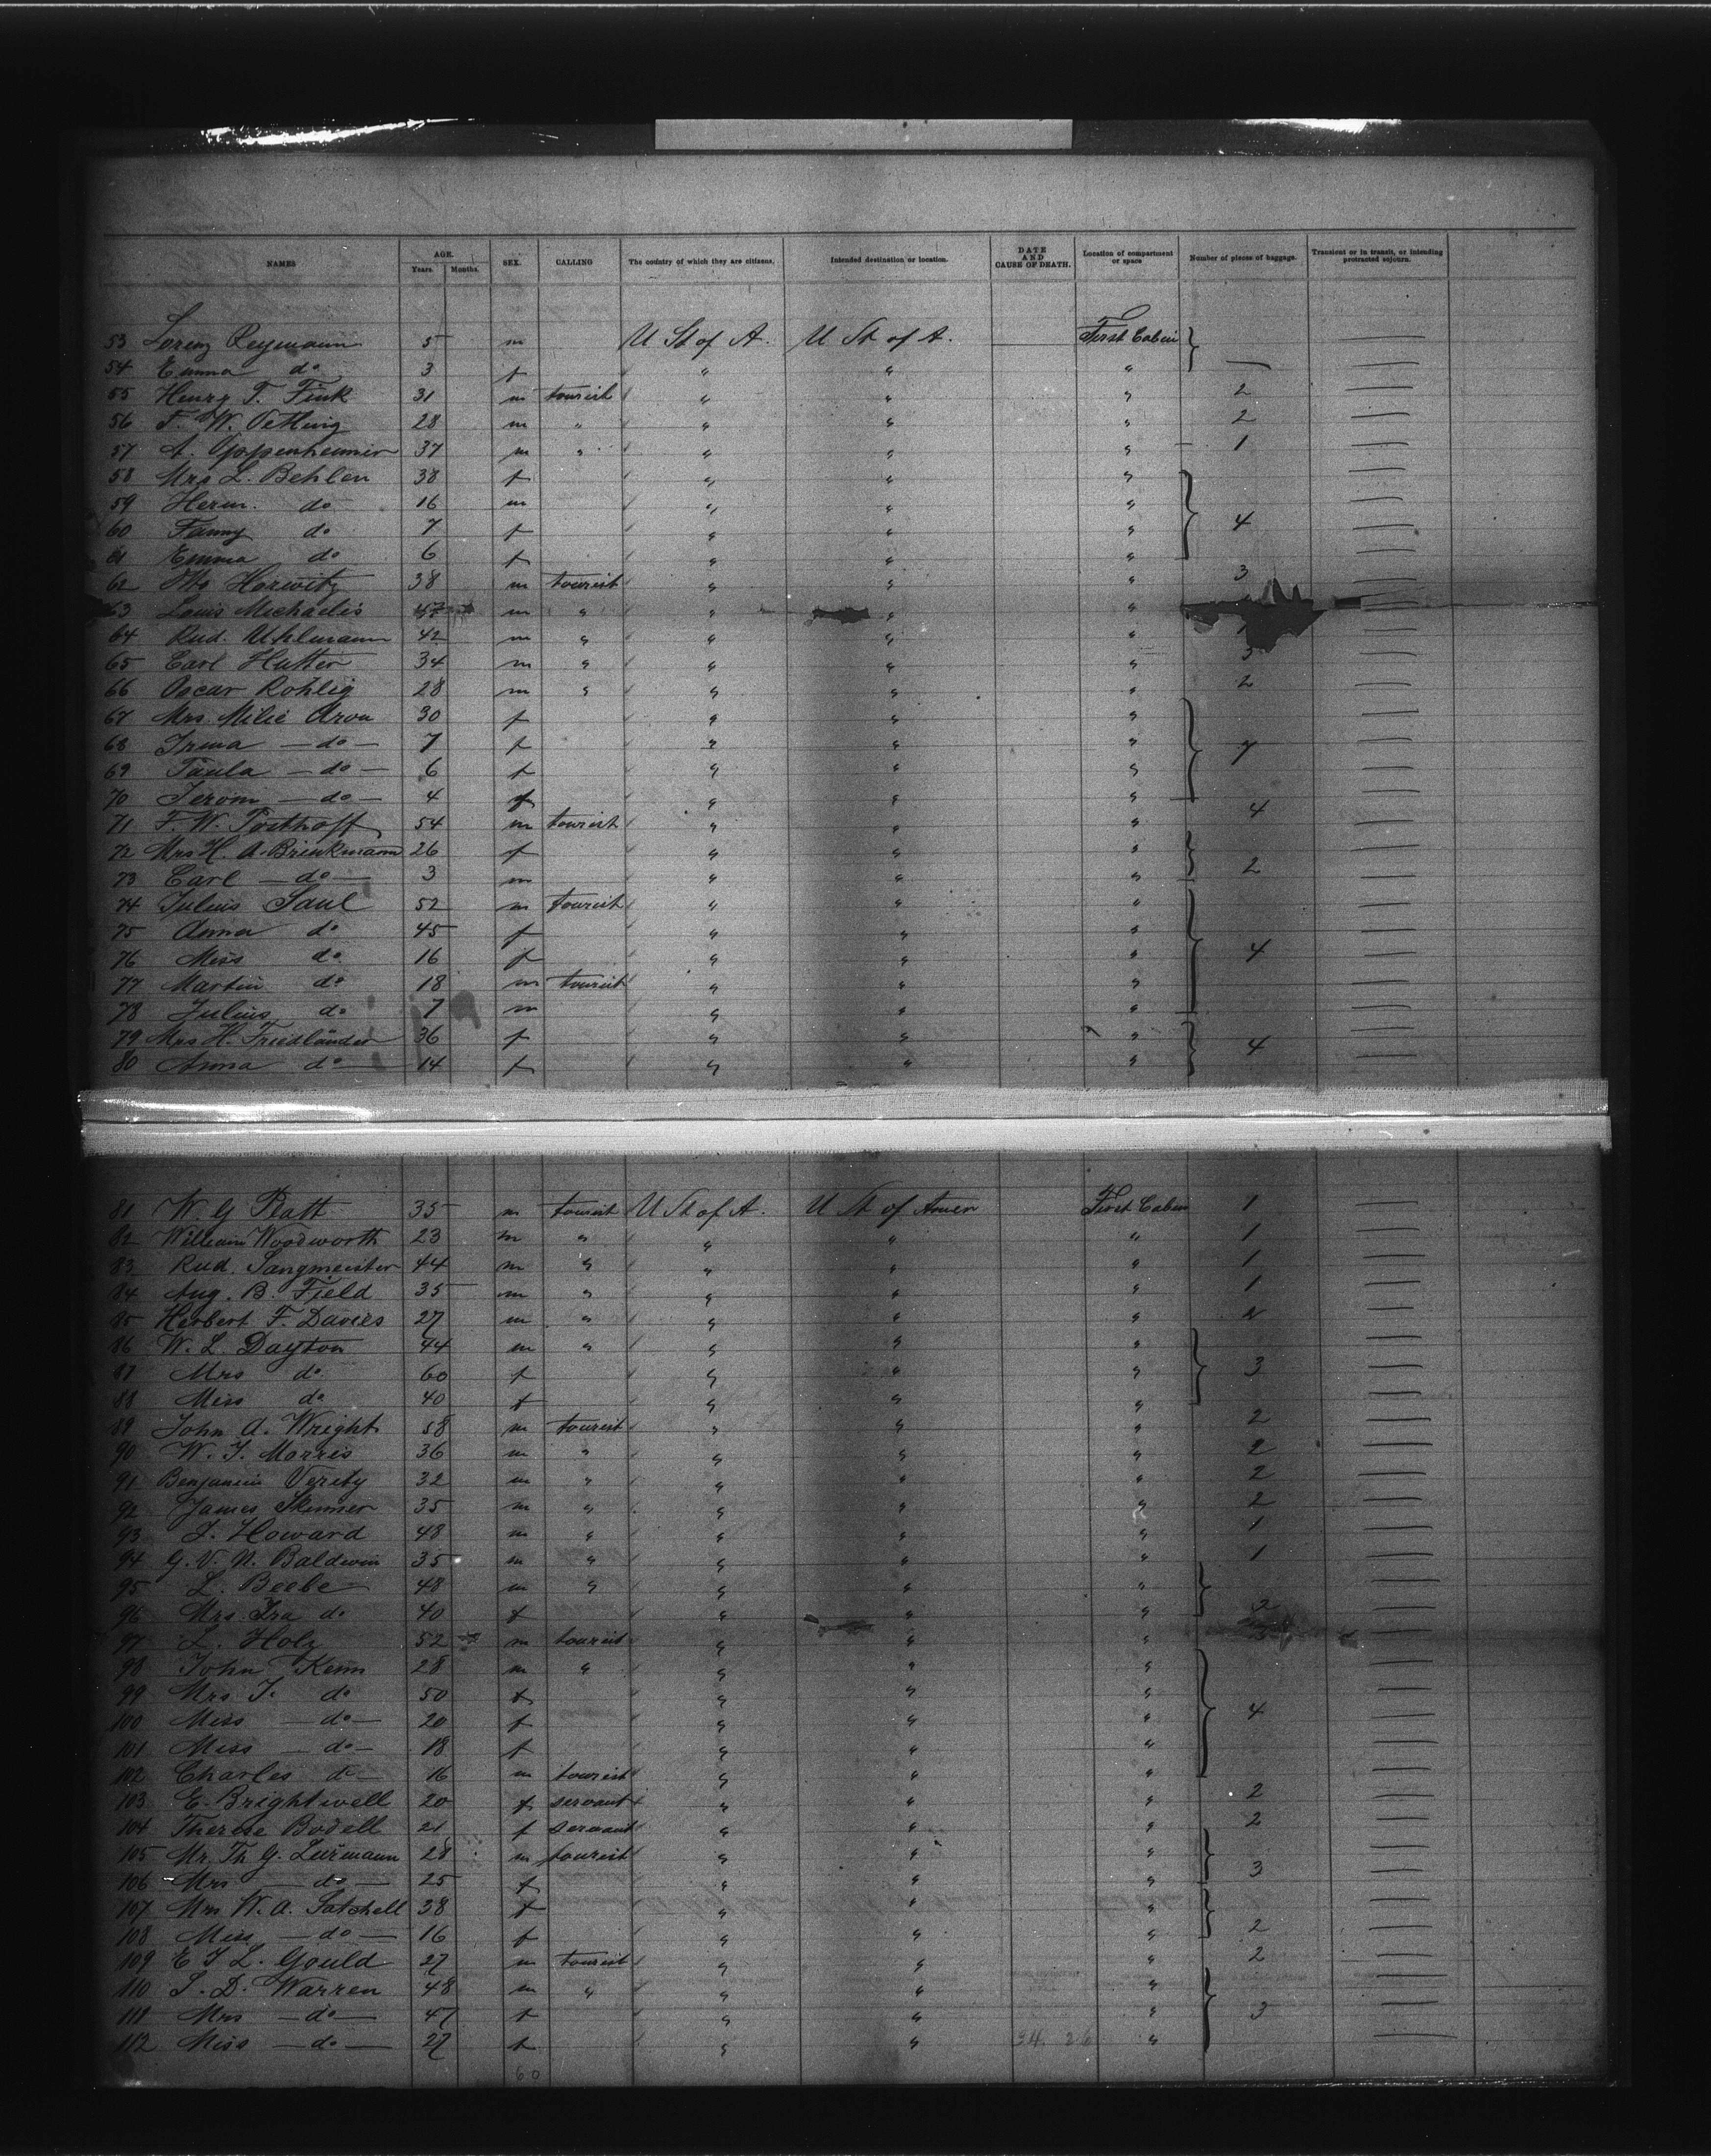 NAMES AGE. Years. Months. SEX. CALLING The country of which they are citizens. Intended destination or location. DATE AND CAUSE OF DEATH. Location of compartment or space Number of pieces of baggage. Transient or in transit, or intending protracted sojourn.
53 Lorenz Reymann 5 m U St of A. U St of A. First Cabin —
54 Emma do 3 f " " " — —
55 Henry T. Fink 31 m tourist " " " 2 —
56 F. W. Oetting 28 m " " " " 2 —
57 A. Oppenheimer 37 m " " " " 1 —
58 Mrs L. Behlen 38 f " " " —
59 Herm. do 16 m " " " —
60 Fanny do 7 f " " " 4 —
61 Emma do 6 f " " " —
62 Horwitz 38 m tourist " " " 3 —
63 Louis Michaelis m " " " "
64 Rud. Uhlmann 42 m " " " " —
65 Carl Hutter 34 m " " " " 3 —
66 Oscar Rohlig 28 m " " " " 2 —
67 Mrs. Milie Aron 30 f " " " —
68 Irma — do — 7 f " " " 7 —
69 Paula — do — 6 f " " " —
70 Jerom — do — 4 " " " —
71 F. W. Posthoff 54 m tourist " " " 4 —
72 Mrs H. A. Brinkmann 26 f " " " —
73 Carl — do — 3 m " " " 2 —
74 Julius Saul 52 m tourist " " " —
75 Anna do 45 f " " " —
76 Miss do 16 f " " " 4 —
77 Martin do 18 m tourist " " " —
78 Julius do 7 m " " " —
79 Mrs H. Friedländer 36 f " " " 4 —
80 Anna do 14 f " " " —
81 W. G Platt 35 m tourist U St of A. U St of Amer First Cabin 1 —
82 William Woodworth 23 m " " " " 1 —
83 Rud. Sangmeister 44 m " " " " 1 —
84 Aug. B. Field 35 m " " " " 1 —
85 Herbert F. Davies 27 m " " " " 2 —
86 W. L. Dayton 44 m " " " " —
87 Mrs do 60 f " " " 3 —
88 Miss do 40 f " " " —
89 John A. Wright 58 m tourist " " " 2 —
90 W. J. Morris 36 m " " " " 2 —
91 Benjamin Verity 32 m " " " " 2 —
92 James Skinner 35 m " " " " 2 —
93 J. Howard 48 m " " " " 1 —
94 G. V. N. Baldwin 35 m " " " " 1 —
95 L. Beebe 48 m " " " " —
96 Mrs. Ira do 40 f " " " 2 —
97 L. Holz 52 m tourist " " "
98 John Kenn 28 m " " " " —
99 Mrs J. do 50 f " " " —
100 Miss — do — 20 f " " " 4 —
101 Miss — do — 18 f " " " —
102 Charles do — 16 m tourist " " " —
103 E. Brightwell 20 f servant " " " 2 —
104 Therese Bodell 21 f servant " " " 2 —
105 Mr. Th. G. Lürmann 28 m tourist " " " —
106 Mrs — do — 25 f " " " 3 —
107 Mrs W. A. Satchell 38 f " " " —
108 Miss — do — 16 f " " " 2 —
109 E J L. Gould 27 m tourist " " " 2 —
110 S. D. Warren 48 m " " " " —
111 Mrs — do — 47 f " " " 3 —
112 Miss — do — 27 f " " 34. 26 " —
60